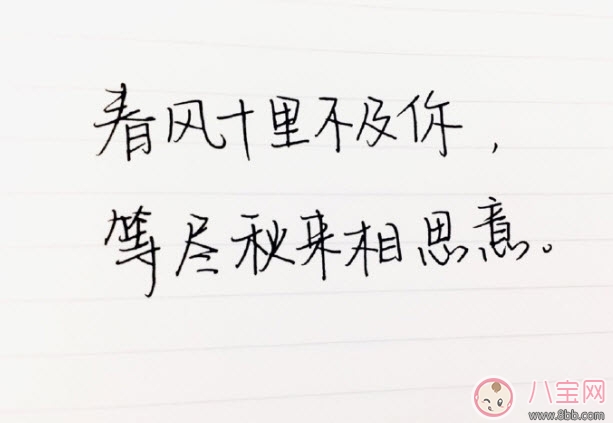 春风十里不及你，
等尽秋来相思意。
八宝网
www.8bb.com